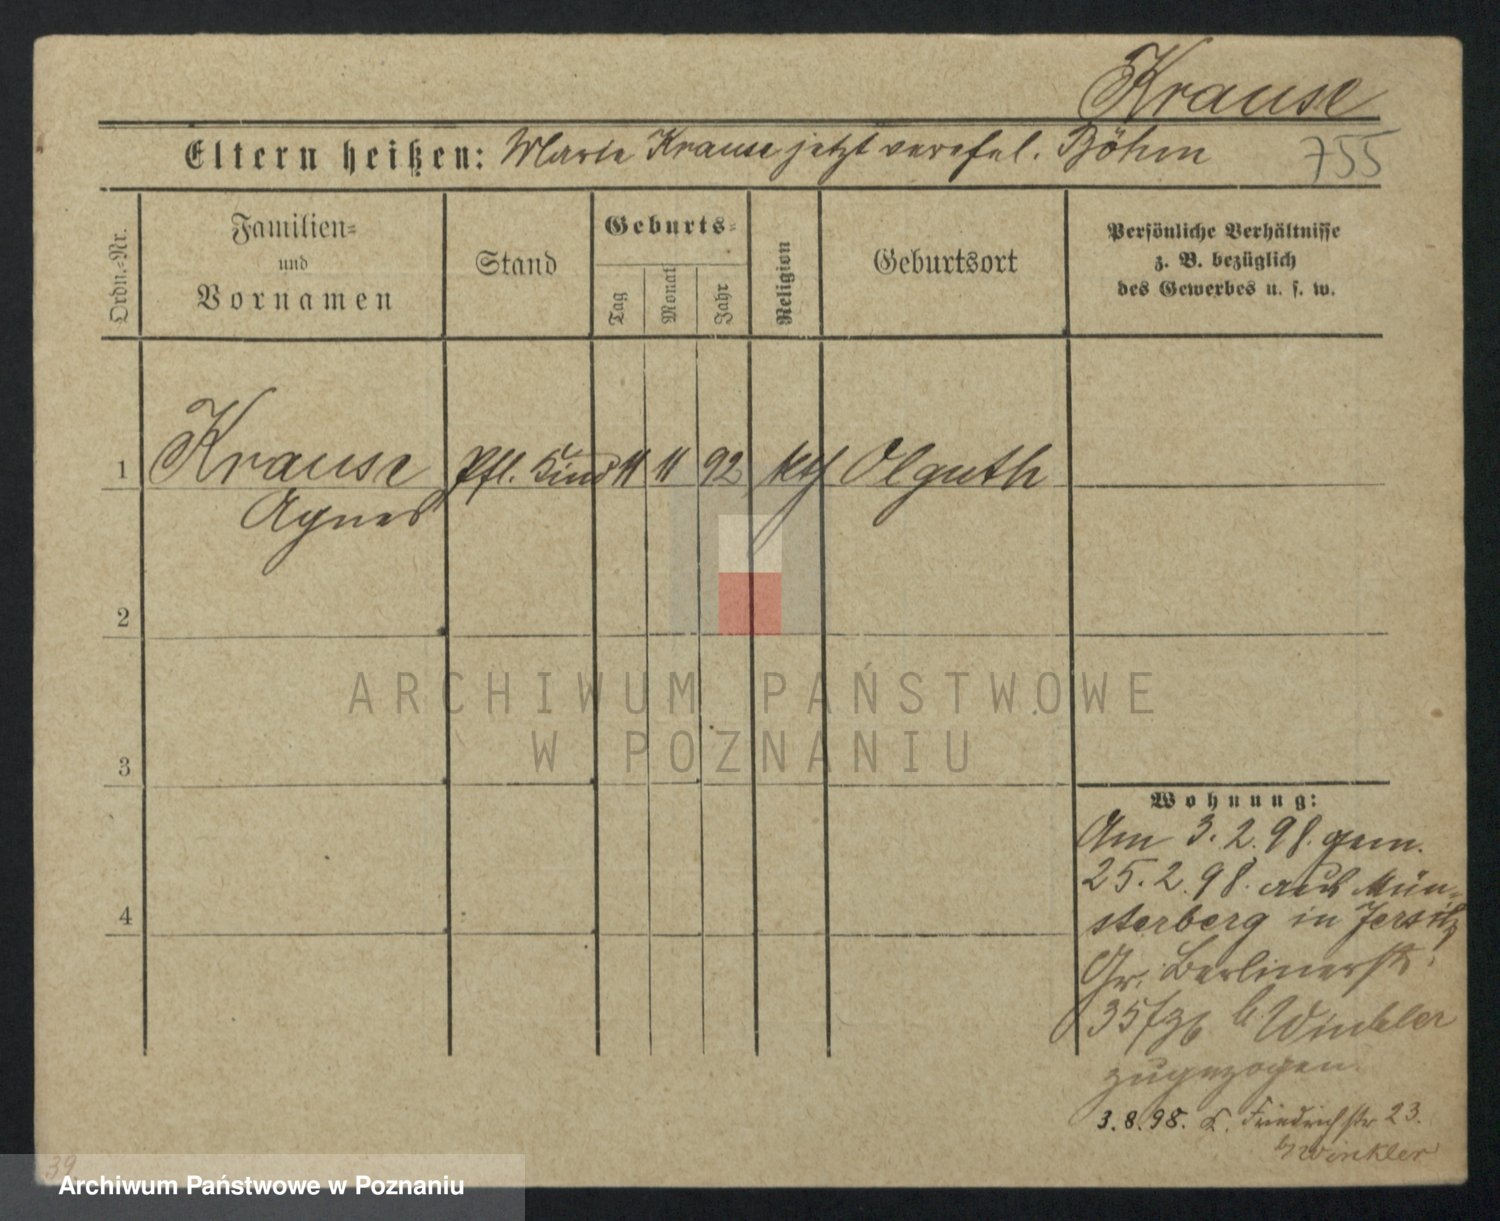 Krause
Eltern heißen: Marie Krause jetzt verehel. Böhm
755
Ordn.-Nr.
Familien-
und
Vornamen
Stand
Geburts-
Tag
Monat
Jahr
Religion
Geburtsort
Persönliche Verhältnisse
z. B. bezüglich
des Gewerbes u. s. w.
1 Krause Pfl. Kind 11 11 92 kth Olguth
Agnes
2
ARCHIWUM PAŃSTWOWE
W POZNANIU
3
Wohnung:
Am 3.2.98. gem.
25.2.98. aus Mün-
4
sterberg in Jersitz
Gr. Berlinerstr.
35 b. Winkler
zugezogen.
3.8.98. Friedrichstr 23.
b/ Winkler
39
Archiwum Państwowe w Poznaniu